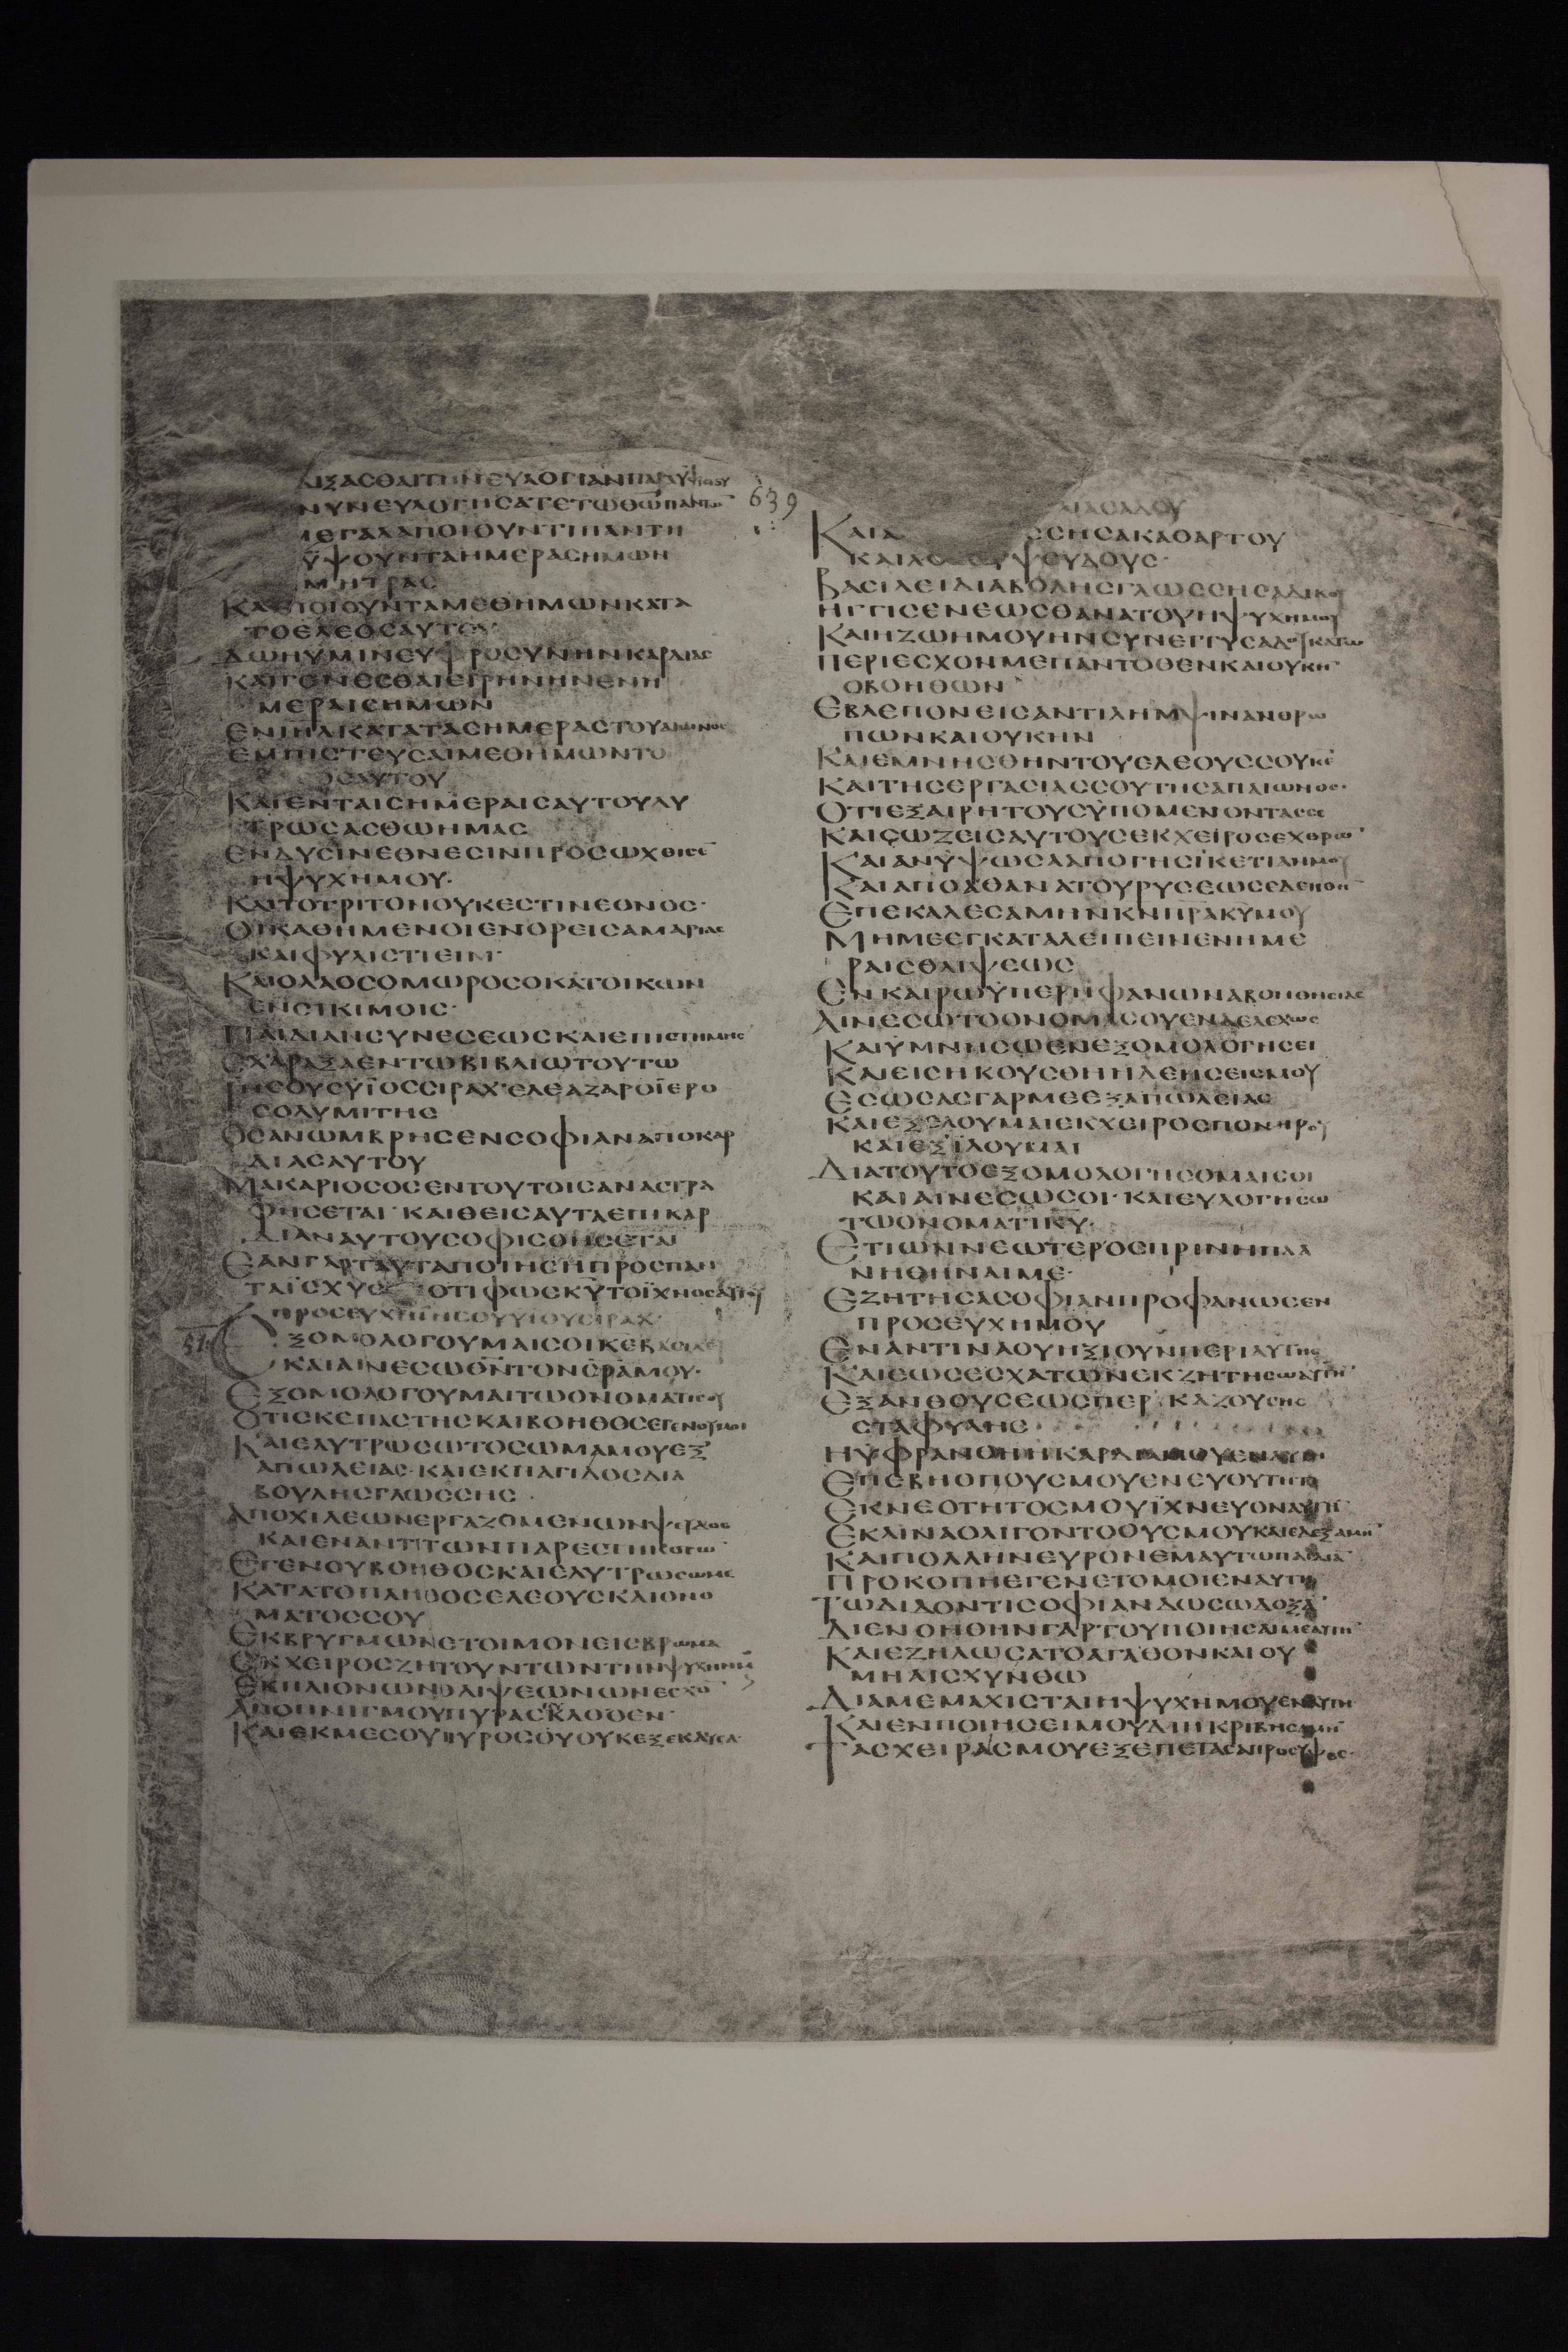 ΔΙΞΑСΘΑΙΤΗΝΕΥΛΟΓΙΑΝΠΑΡΑΥΨΙСΤΟΥ
ΝΥΝΕΥΛΟΓΗСΑΤΕΤΩΘΩΠΑΝΤΩ
639
ΜΕΓΑΛΑΠΟΙΟΥΝΤΙΠΑΝΤΗ
ΥΨΟΥΝΤΑΗΜΕΡΑСΗΜΩΝ
ΜΗΤΡΑС
ΚΑΙΠΟΙΟΥΝΤΑΜΕΘΗΜΩΝΚΑΤΑ
ΤΟΕΛΕΟСΑΥΤΟΥ
ΔΩΗΥΜΙΝΕΥΦΡΟСΥΝΗΝΚΑΡΔΙΑС
ΚΑΙΓΕΝΕСΘΑΙΕΙΡΗΝΗΝΕΝΗ
ΜΕΡΑΙСΗΜΩΝ
ΕΝΙΗΛΚΑΤΑΤΑСΗΜΕΡΑСΤΟΥΑΙΩΝΟС
ΕΜΠΙСΤΕΥСΑΙΜΕΘΗΜΩΝΤΟ
ΟСΑΥΤΟΥ
ΚΑΙΕΝΤΑΙСΗΜΕΡΑΙСΑΥΤΟΥΛΥ
ΤΡΩСΑСΘΩΗΜΑС
ΕΝΔΥСΙΝΕΘΝΕСΙΝΠΡΟСΩΧΘΙСΕ
ΗΨΥΧΗΜΟΥ·
ΚΑΙΤΟΤΡΙΤΟΝΟΥΚΕСΤΙΝΕΘΝΟС·
ΟΙΚΑΘΗΜΕΝΟΙΕΝΟΡΕΙСΑΜΑΡΙΑС
ΚΑΙΦΥΛΙСΤΙΕΙΜ·
ΚΑΙΟΛΑΟСΟΜΩΡΟСΟΚΑΤΟΙΚΩΝ
ΕΝСΙΚΙΜΟΙС·
ΠΑΙΔΙΑΝСΥΝΕСΕΩСΚΑΙΕΠΙСΤΗΜΗС
ΕΧΑΡΑΞΑΕΝΤΩΒΙΒΛΙΩΤΟΥΤΩ
ΙΗСΟΥСΥΪΟССΙΡΑΧ·ΕΛΕΑΖΑΡΟΪΕΡΟ
СΟΛΥΜΙΤΗС
ΟСΑΝΩΜΒΡΗСΕΝСΟΦΙΑΝΑΠΟΚΑΡ
ΔΙΑСΑΥΤΟΥ
ΜΑΚΑΡΙΟСΟСΕΝΤΟΥΤΟΙСΑΝΑСΤΡΑ
ΦΗСΕΤΑΙ·ΚΑΙΘΕΙСΑΥΤΑΕΠΙΚΑΡ
ΔΙΑΝΑΥΤΟΥСΟΦΙСΘΗСΕΤΑΙ
ΕΑΝΓΑΡΤΑΥΤΑΠΟΙΗСΗΠΡΟСΠΑΝ
ΤΑΪСΧΥС ΟΤΙΦΩСΚΥΤΟΪΧΝΟСΑΥΤΟΥ
ΠΡΟСΕΥΧΗΙΗСΟΥΥΙΟΥСΙΡΑΧ·
51 ΕΞΟΜΟΛΟΓΟΥΜΑΙСΟΙΚΕΒΑСΙΛΕΥ
ΚΑΙΑΙΝΕСΩΘΝΤΟΝСΡΑΜΟΥ·
ΕΞΟΜΟΛΟΓΟΥΜΑΙΤΩΟΝΟΜΑΤΙСΟΥ
ΟΤΙСΚΕΠΑСΤΗСΚΑΙΒΟΗΘΟСΕΓΕΝΟΥΜΟΙ
ΚΑΙΕΛΥΤΡΩСΩΤΟСΩΜΑΜΟΥΕΞ
ΑΠΩΛΕΙΑС·ΚΑΙΕΚΠΑΓΙΔΟСΔΙΑ
ΒΟΥΛΗСΓΛΩССΗС
ΑΠΟΧΙΛΕΩΝΕΡΓΑΖΟΜΕΝΩΝΨΕΥΔΟС
ΚΑΙΕΝΑΝΤΙΤΩΝΠΑΡΕСΤΗΚΟΤΩ
ΕΓΕΝΟΥΒΟΗΘΟСΚΑΙΕΛΥΤΡΩСΩΜΕ
ΚΑΤΑΤΟΠΛΗΘΟСΕΛΕΟΥСΚΑΙΟΝΟ
ΜΑΤΟССΟΥ
ΕΚΒΡΥΓΜΩΝΕΤΟΙΜΟΝΕΙСΒΡΩΜΑ
ΕΚΧΕΙΡΟСΖΗΤΟΥΝΤΩΝΤΗΝΨΥΧΗΝΜΟΥ
ΕΚΠΛΙΟΝΩΝΘΛΙΨΕΩΝΩΝΕСΧΟ
ΑΠΟΠΝΙΓΜΟΥΠΥΡΑСΚΛΟΘΕΝ·
ΚΑΙΕΚΜΕСΟΥΠΥΡΟСΟΥΟΥΚΕΞΕΚΑΥСΑ·
ΙΑСΑΔΟΥ
ΚΑΙΑ ССΗСΑΚΑΘΑΡΤΟΥ
ΚΑΙΛΟΓΟΥΨΕΥΔΟΥС·
ΒΑСΙΛΕΙΔΙΑΒΟΛΗСΓΛΩССΗСΑΔΙΚΟΥ
ΗΓΓΙСΕΝΕΩСΘΑΝΑΤΟΥΗΨΥΧΗΜΟΥ
ΚΑΙΗΖΩΗΜΟΥΗΝСΥΝΕΓΓΥСΑΔΟΥΚΑΤΩ
ΠΕΡΙΕСΧΟΝΜΕΠΑΝΤΟΘΕΝΚΑΙΟΥΚΗ
ΟΒΟΗΘΩΝ
ΕΒΛΕΠΟΝΕΙСΑΝΤΙΛΗΜΨΙΝΑΝΘΡΩ
ΠΩΝΚΑΙΟΥΚΗΝ
ΚΑΙΕΜΝΗСΘΗΝΤΟΥΕΛΕΟΥССΟΥΚΕ
ΚΑΙΤΗСΕΡΓΑСΙΑССΟΥΤΗСΑΠΑΙΩΝΟС·
ΟΤΙΕΞΑΙΡΗΤΟΥСΫΠΟΜΕΝΟΝΤΑССΕ
ΚΑΙСΩΖΕΙСΑΥΤΟΥСΕΚΧΕΙΡΟСΕΧΘΡΩ
ΚΑΙΑΝΥΨΩСΑΑΠΟΓΗСΪΚΕΤΙΑΝΜΟΥ
ΚΑΙΑΠΟΑΘΑΝΑΤΟΥΡΥСΕΩСΕΔΕΗΘΗ
ΕΠΕΚΑΛΕСΑΜΗΝΚΝΠΡΑΚΥΜΟΥ
ΜΗΜΕΕΓΚΑΤΑΛΕΙΠΕΙΝΕΝΗΜΕ
ΡΑΙСΘΛΙΨΕΩС
ΕΝΚΑΙΡΩΫΠΕΡΗΦΑΝΩΝΑΒΟΗΘΗСΙΑС
ΑΙΝΕСΩΤΟΟΝΟΜΑСΟΥΕΝΔΕΛΕΧΩС
ΚΑΙΥΜΝΗСΩΕΝΕΞΟΜΟΛΟΓΗСΕΙ
ΚΑΙΕΙСΗΚΟΥСΘΗΗΔΕΗСΕΙСΜΟΥ
ΕСΩСΑСΓΑΡΜΕΕΞΑΠΩΛΕΙΑС
ΚΑΙΕΞΕΛΟΥΜΑΙΕΚΧΕΙΡΟСΠΟΝΗΡΟΥ
ΚΑΙΕΞΙΛΟΥΜΑΙ
ΔΙΑΤΟΥΤΟΕΞΟΜΟΛΟΓΗСΟΜΑΙСΟΙ
ΚΑΙΑΙΝΕСΩСΟΙ·ΚΑΙΕΥΛΟΓΗСΩ
ΤΩΟΝΟΜΑΤΙΚΥ·
ΕΤΙΩΝΝΕΩΤΕΡΟСΠΡΙΝΗΠΛΑ
ΝΗΘΗΝΑΙΜΕ·
ΕΖΗΤΗСΑСΟΦΙΑΝΠΡΟΦΑΝΩСΕΝ
ΠΡΟСΕΥΧΗΜΟΥ
ΕΝΑΝΤΙΝΑΟΥΗΞΙΟΥΝΠΕΡΙΑΥΤΗС
ΚΑΙΕΩСΕСΧΑΤΩΝΕΚΖΗΤΗСΩΑΥΤΗ
ΕΞΑΝΘΟΥСΕΩСΠΕΡ ΚΑΖΟΥСΗС
СΤΑΦΥΛΗС
ΗΥΦΡΑΝΘΗΗΚΑΡΔΙΑΜΟΥΕΝΑΥΤΗ
ΕΠΕΒΗΟΠΟΥСΜΟΥΕΝΕΥΘΥΤΗΤΙ
ΕΚΝΕΟΤΗΤΟСΜΟΥΪΧΝΕΥΟΝΑΥΤΗ
ΕΚΛΙΝΑΟΛΙΓΟΝΤΟΟΥСΜΟΥΚΑΙΕΔΕΞΑΜΗ
ΚΑΙΠΟΛΛΗΝΕΥΡΟΝΕΜΑΥΤΩΠΑΙΔΙΑ
ΠΡΟΚΟΠΗΕΓΕΝΕΤΟΜΟΙΕΝΑΥΤΗ
ΤΩΔΙΔΟΝΤΙСΟΦΙΑΝΔΩСΩΔΟΞΑ
ΔΙΕΝΟΗΘΗΝΓΑΡΤΟΥΠΟΙΗСΑΙΜΕΑΥΤΗ
ΚΑΙΕΖΗΛΩСΑΤΟΑΓΑΘΟΝΚΑΙΟΥ
ΜΗΑΙСΧΥΝΘΩ
ΔΙΑΜΕΜΑΧΙСΤΑΙΗΨΥΧΗΜΟΥΕΝΑΥΤΗ
ΚΑΙΕΝΠΟΙΗСΕΙΜΟΥΔΙΗΚΡΙΒΗСΑΜΗ
ΤΑСΧΕΙΡΑСΜΟΥΕΞΕΠΕΤΑСΑΠΡΟСΥΨΟС·